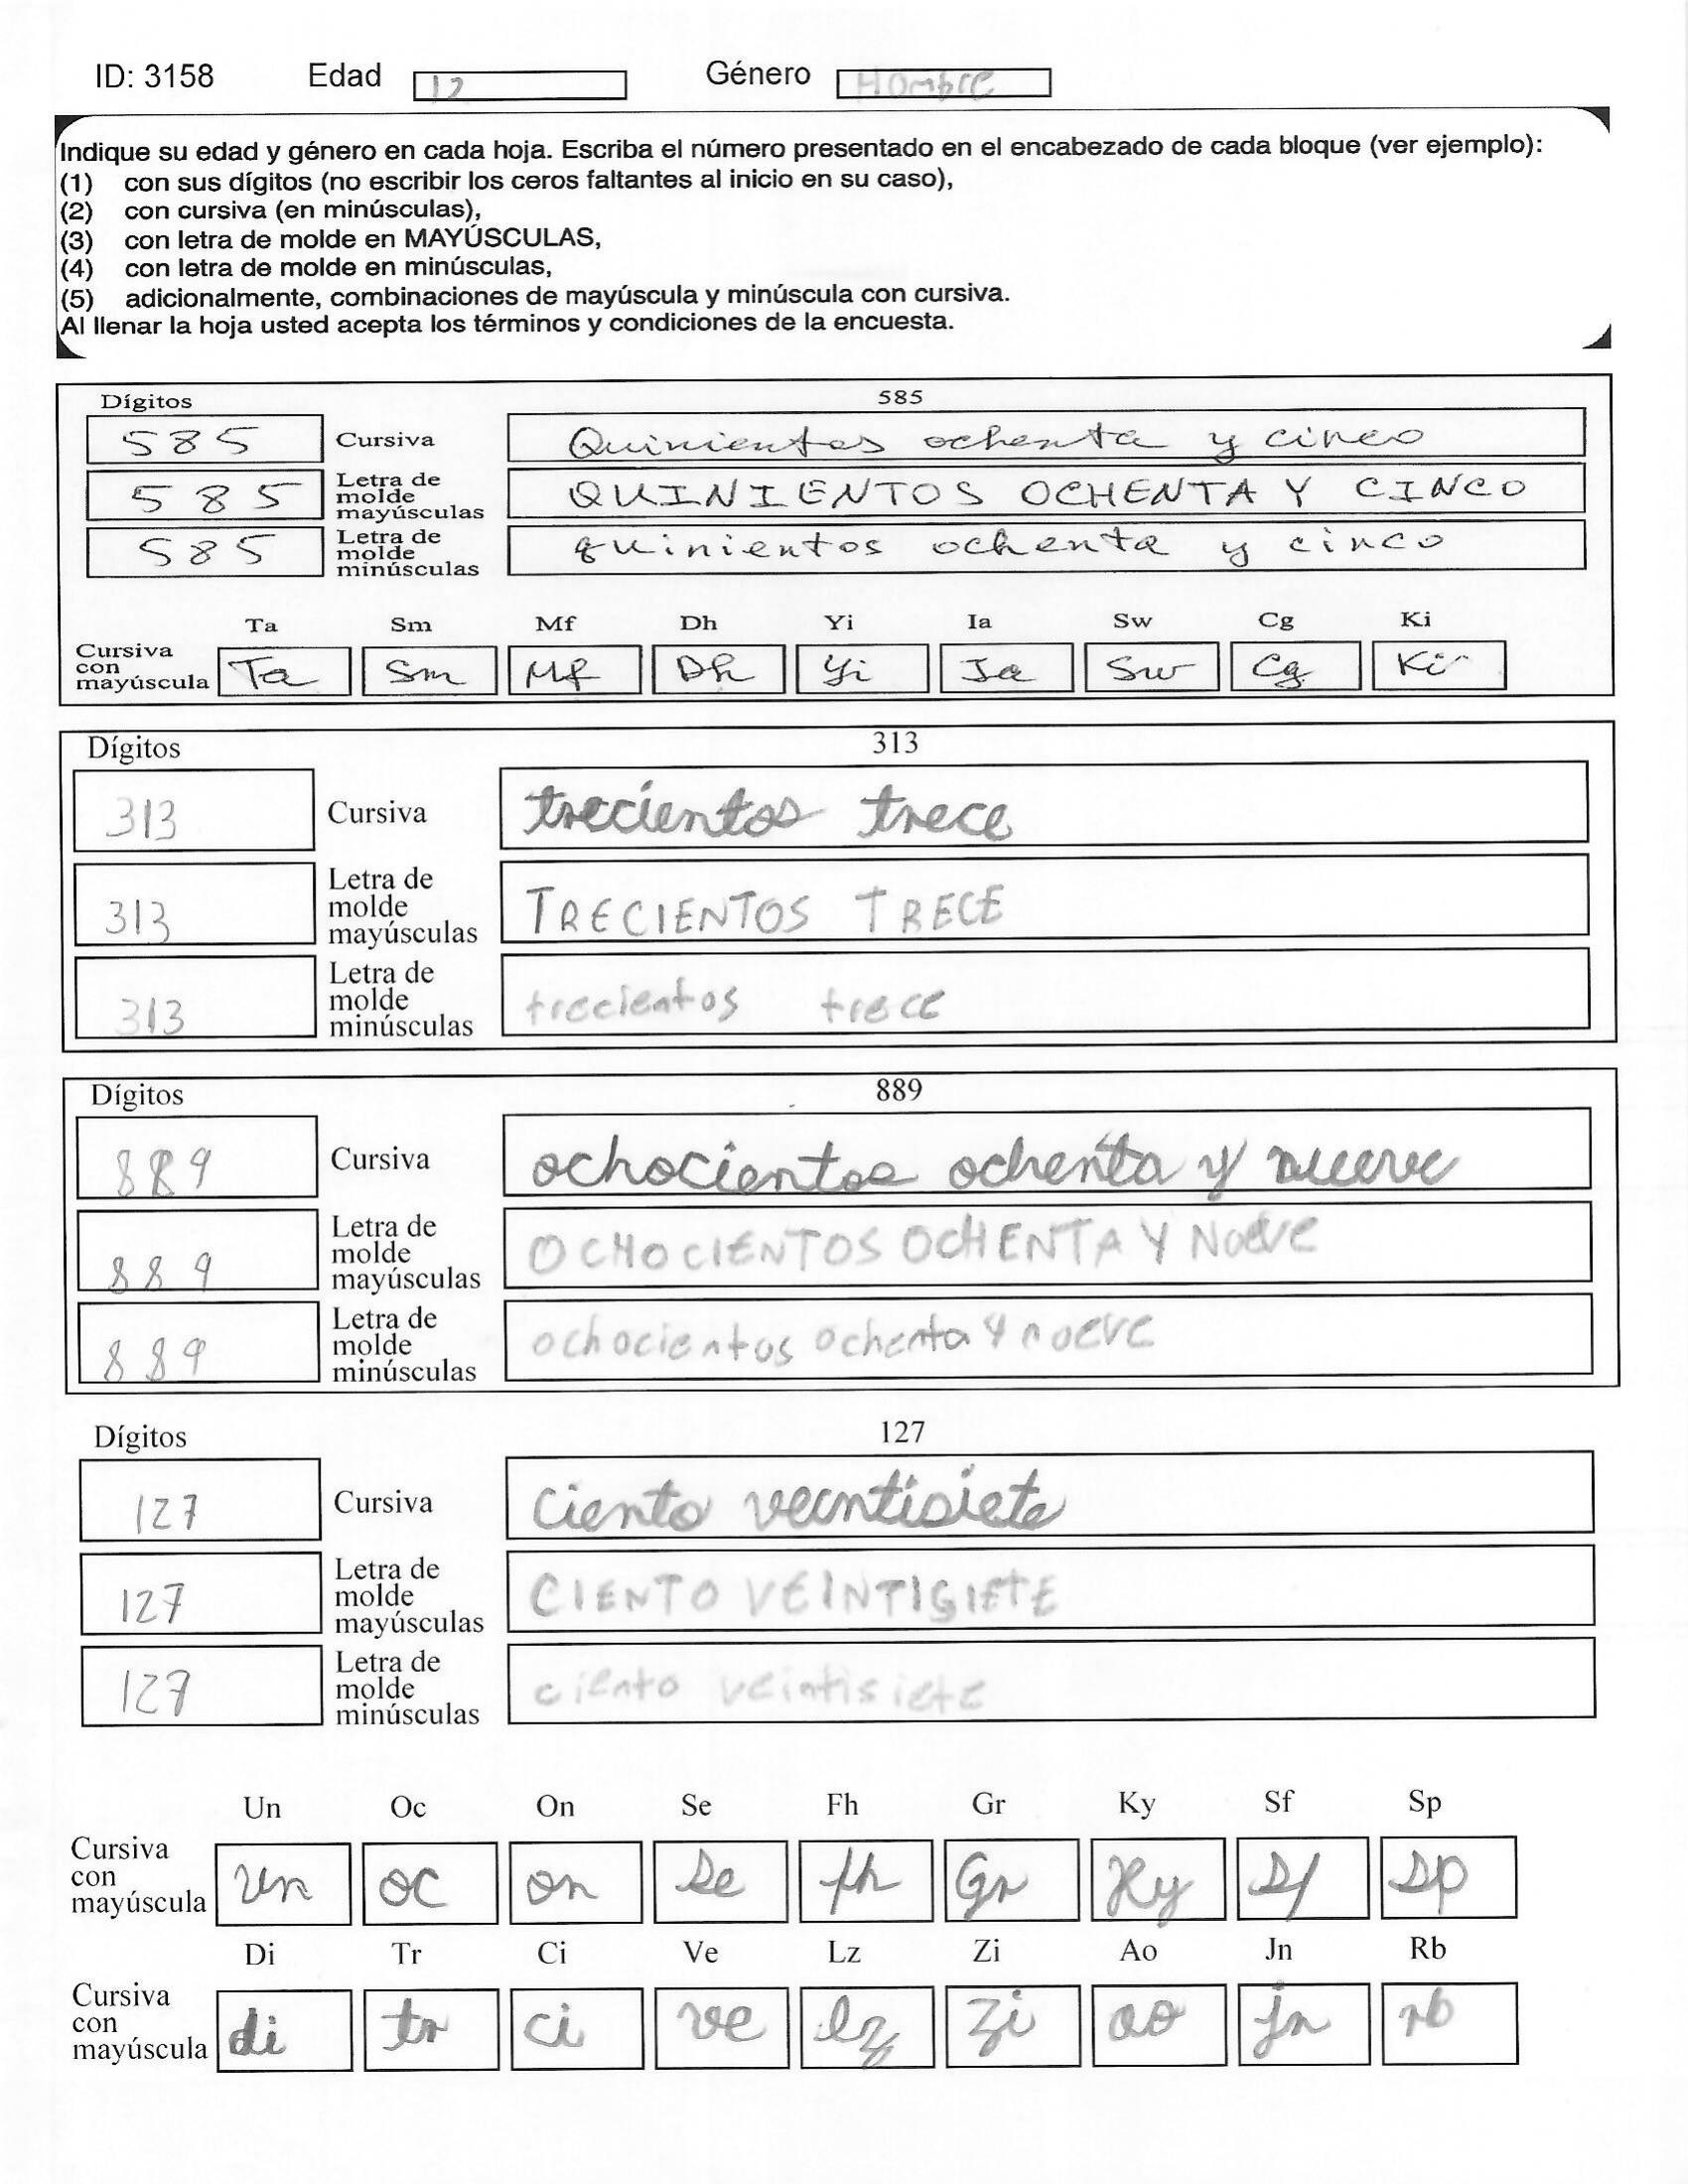 ID: 3158 Edad 12 Género Hombre
Indique su edad y género en cada hoja. Escriba el número presentado en el encabezado de cada bloque (ver ejemplo):
(1) con sus dígitos (no escribir los ceros faltantes al inicio en su caso),
(2) con cursiva (en minúsculas),
(3) con letra de molde en MAYÚSCULAS,
(4) con letra de molde en minúsculas,
(5) adicionalmente, combinaciones de mayúscula y minúscula con cursiva.
Al llenar la hoja usted acepta los términos y condiciones de la encuesta.
Dígitos 585
585 Cursiva Quinientos ochenta y cinco
585 Letra de molde mayúsculas QUINIENTOS OCHENTA Y CINCO
585 Letra de molde minúsculas quinientos ochenta y cinco
Ta Sm Mf Dh Yi Ia Sw Cg Ki
Cursiva con mayúscula Ta Sm Mf Dh Yi Ia Sw Cg Ki
Dígitos 313
313 Cursiva trecientos trece
313 Letra de molde mayúsculas TRECIENTOS TRECE
313 Letra de molde minúsculas trecientos trece
Dígitos 889
889 Cursiva ochocientos ochenta y nueve
889 Letra de molde mayúsculas OCHOCIENTOS OCHENTA Y NOEVE
889 Letra de molde minúsculas ochocientos ochenta y noeve
Dígitos 127
127 Cursiva ciento veintisiete
127 Letra de molde mayúsculas CIENTO VEINTISIETE
127 Letra de molde minúsculas ciento veintisiete
Un Oc On Se Fh Gr Ky Sf Sp
Cursiva con mayúscula un oc on se fh Gr Ky Sf Sp
Di Tr Ci Ve Lz Zi Ao Jn Rb
Cursiva con mayúscula di tr ci ve lz Zi ao jn rb